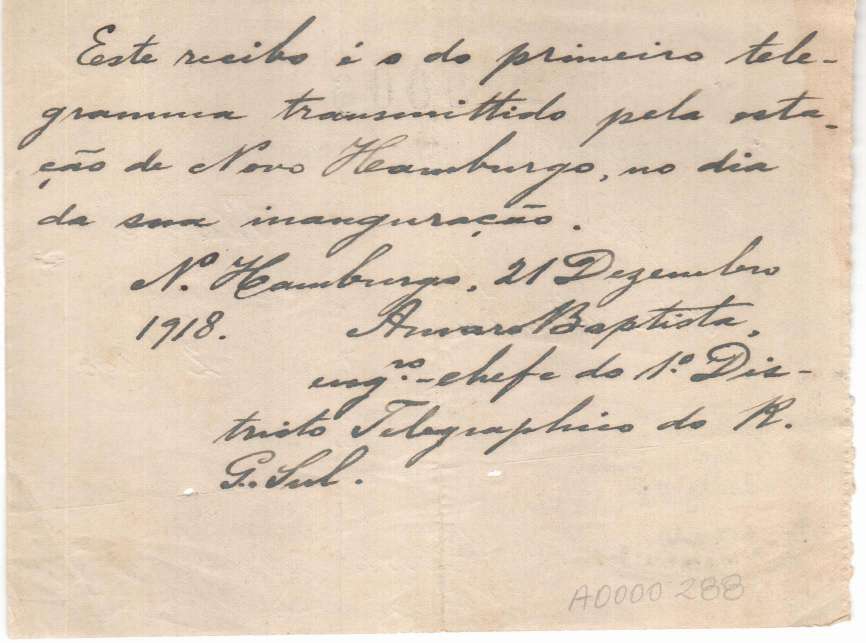 Este recibo é o do primeiro tele-
gramma transmittido pela esta-
ção de Novo Hamburgo, no dia
da sua inauguração.
N.º Hamburgo, 21 Dezembro
1918. Alvaro Baptista,
eng.ro-chefe do 1.º Dis-
tricto Telegraphico do R.
G. Sul.
A0000 288